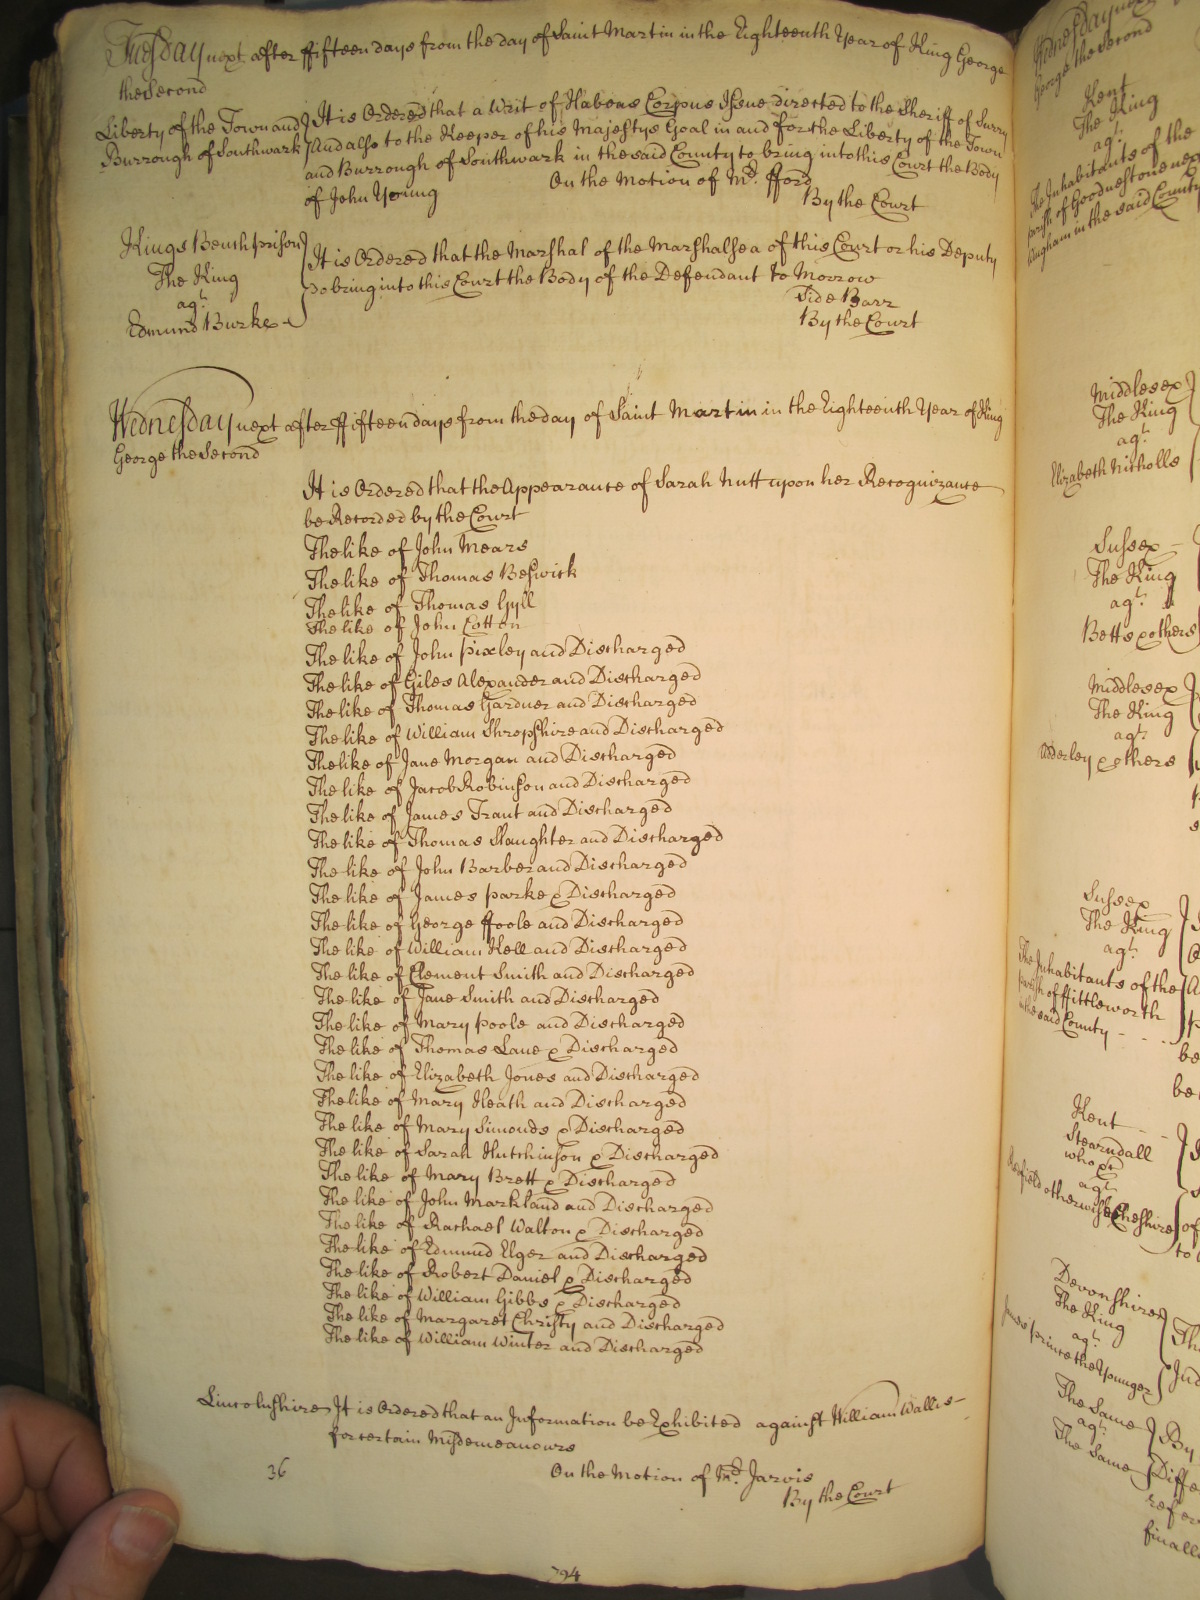 Tuesday next after ffifteen days from the day of Saint Martin in the Eighteenth Year of King George
the Second
Liberty of the Town and
Burrough of Southwark
It is Ordered that a Writ of Habeas Corpus Issue directed to the Sheriff of Surry
And also to the Keeper of his Majestys Goal in and for the Liberty of the Town
and Burrough of Southwark in the said County to bring into this Court the Body
of John Young
On the Motion of Mr. fford
By the Court
Kings Bench prison
The King
agt.
Edmund Burke
It is Ordered that the Marshal of the Marshalsea of this Court or his Deputy
do bring into this Court the Body of the Defendant to Morrow
Side Barr
By the Court
Wednesday next after ffifteen days from the day of Saint Martin in the Eighteenth Year of King
George the Second
It is Ordered that the Appearance of Sarah Nutt upon her Recognizance
be Recorded by the Court
The like of John Mears
The like of Thomas Beswick
The like of Thomas Gyll
The like of John Cotton
The like of John pixley and Discharged
The like of Giles Alexander and Discharged
The like of Thomas Gardner and Discharged
The like of William Shropshire and Discharged
The like of Jane Morgan and Discharged
The like of Jacob Robinson and Discharged
The like of James Trant and Discharged
The like of Thomas Slaughter and Discharged
The like of John Barber and Discharged
The like of James parke & Discharged
The like of George ffoole and Discharged
The like of William Hell and Discharged
The like of Clement Smith and Discharged
The like of Jane Smith and Discharged
The like of Mary poole and Discharged
The like of Thomas Lane & Discharged
The like of Elizabeth Jones and Discharged
The like of Mary Heath and Discharged
The like of Mary Simonds & Discharged
The like of Sarah Hutchinson & Discharged
The like of Mary Brett & Discharged
The like of John Markland and Discharged
The like of Rachael Walton & Discharged
The like of Edmund Elger and Discharged
The like of Robert Daniel & Discharged
The like of William Gibbs & Discharged
The like of Margaret Christy and Discharged
The like of William Winter and Discharged
Lincolnshire It is Ordered that an Information be Exhibited against William Wallis
for certain Misdemeanours
36
On the Motion of Mr. Jarvis
By the Court
794
Wednesday
George the Second
Kent
The King
agt.
The Inhabitants of the
parish of Goodnestone next
Wingham in the said County
Middlesex
The King
agt.
Elizabeth Nicholls
Sussex
The King
agt.
Betts & others
Middlesex
The King
agt.
Adderley & others
Sussex
The King
agt.
The Inhabitants of the
parish of ffittleworth
in the said County
be
be
Kent
Stearndall
who &c
agt.
otherwise Cheshire
of
to
Devonshire
The King
agt.
James prince the Younger
The Same
agt.
The Same
By
Diffe
refer
finall